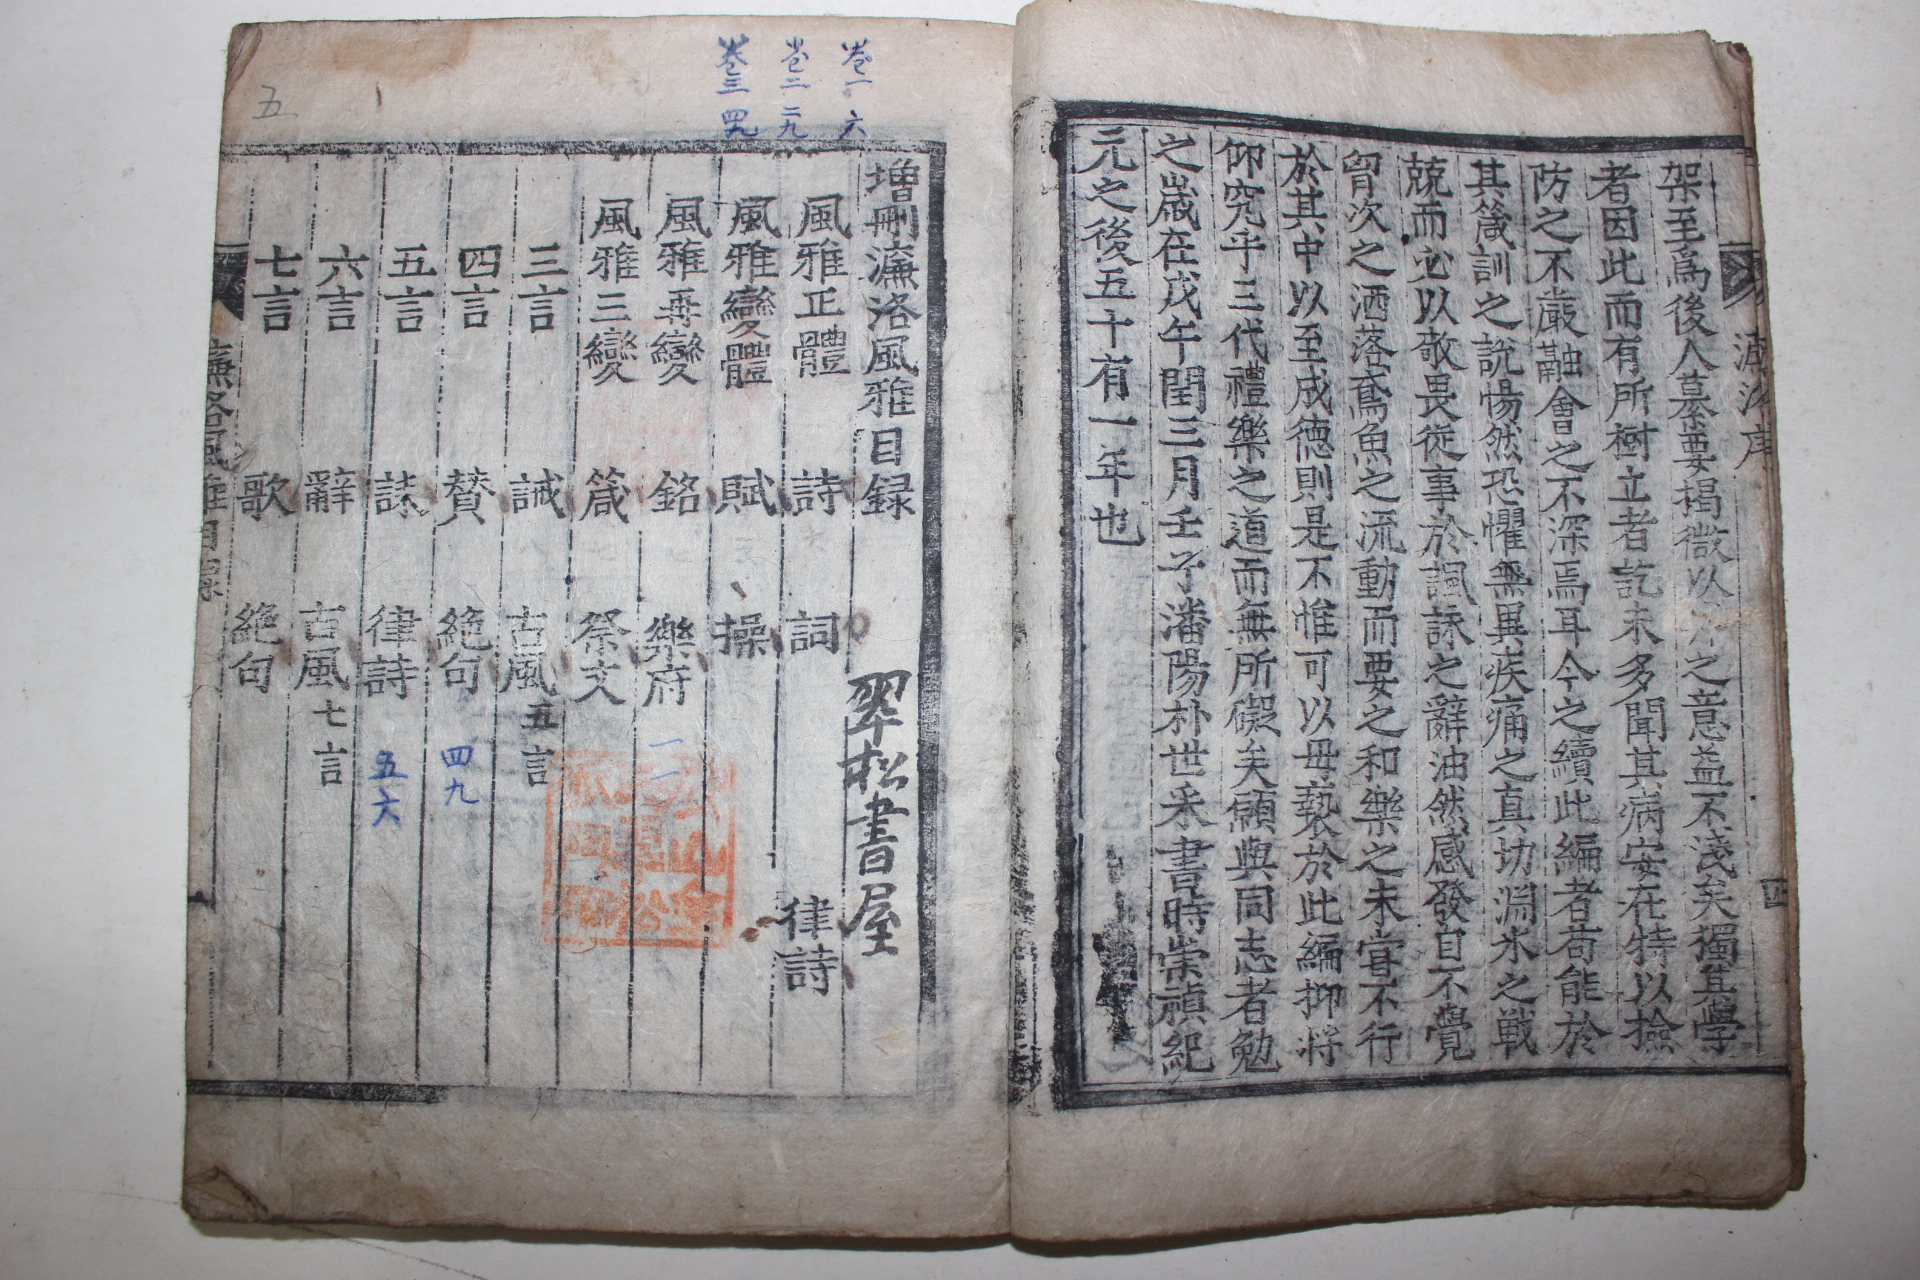 架至為後人慕要揭微以之意益不淺矣獨其學
者因此而有所樹立者訖未多聞其病安在特以撿
防之不嚴融會之不深焉耳今之續此編者苟能於
其箴訓之說惕然恐懼無異疾痛之真切淵氷之戦
兢而必以敬畏從事於諷詠之辭油然感發自不覺
胷次之洒落鳶魚之流動而要之和樂之未甞不行
於其中以至成德則是不惟可以毋褻於此編抑將
仰究乎三代禮樂之道而無所礙矣願與同志者勉
之歲在戊午閏三月壬子潘陽朴世采書時崇禎紀
元之後五十有一年也
四
卷一 六
卷二 二九
卷三 四九
五
增刪濂洛風雅目録
翠松書屋
風雅正體 詩 詞 律詩
風雅變體 賦 操
風雅再變 銘 樂府 一一
風雅三變 箴 祭文
三言 誡 古風五言
四言 賛 絶句 四九
五言 誄 律詩 五六
六言 辭 古風七言
七言 歌 絶句
濂洛風雅目録